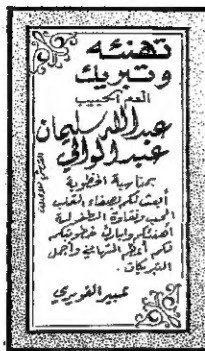 تهنئه
وتبريك
العم الحبيب
عبدالله سليمان
عبدالوالي
بمناسبة الخطوبة
أبعث لكم بصفاء القلب
المحب ونقاوة الطفولة
أهنئكم وأبارك خطوبتكم
فلكم أعطر التهاني وأجمل
التبريكات.
عبير